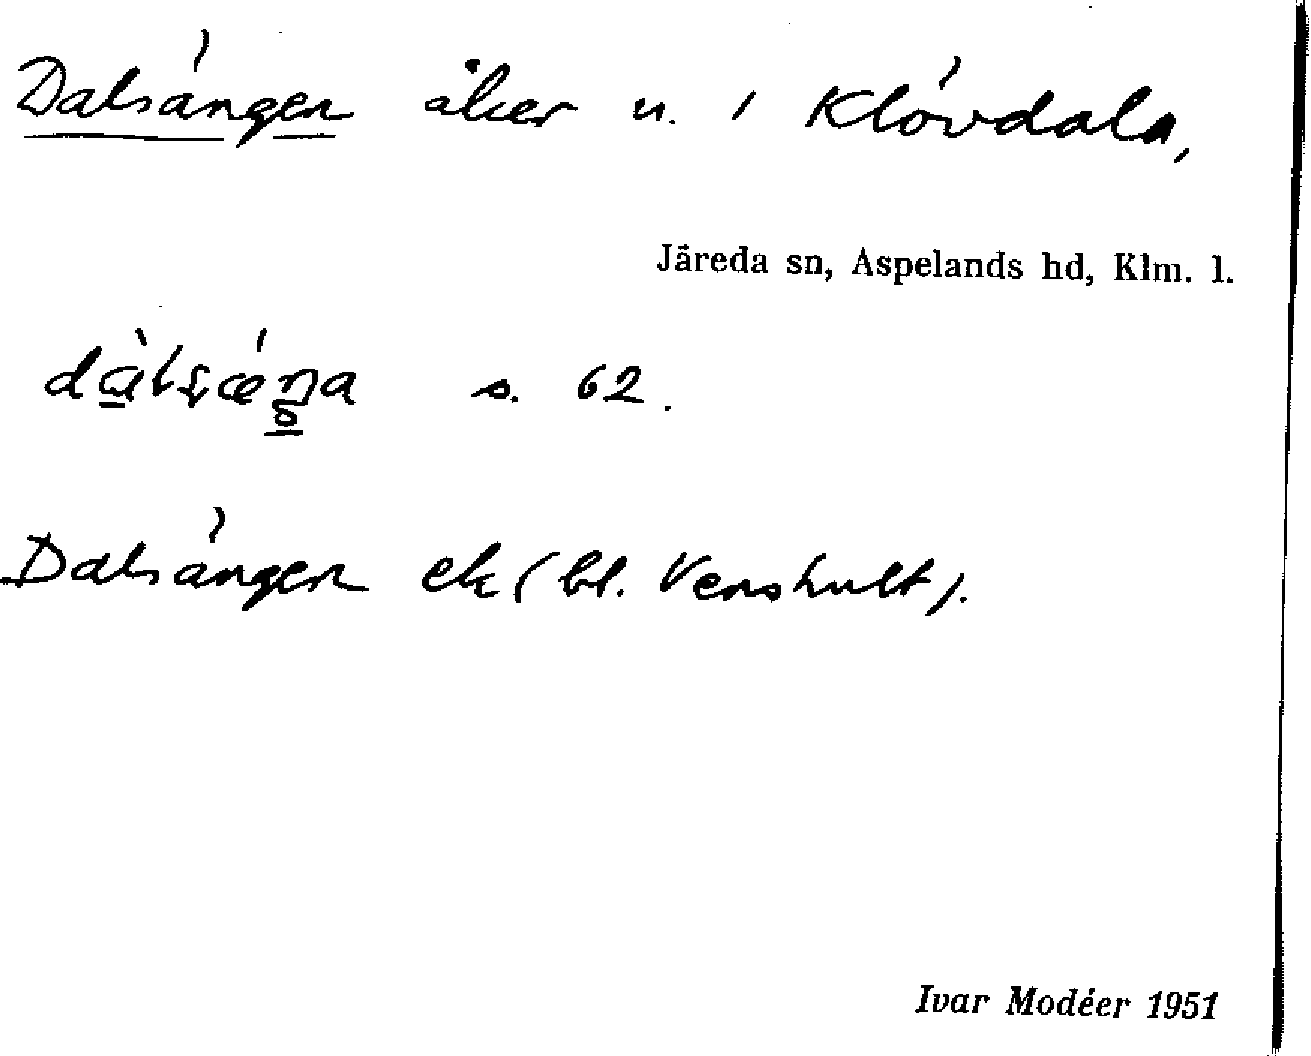 Dalsängen åker n. i Klövdala,
Järeda sn, Aspelands hd, Klm. l.
s. 62.
Dalsängen ek (bl. Venshult).
Ivar Modéer 1951